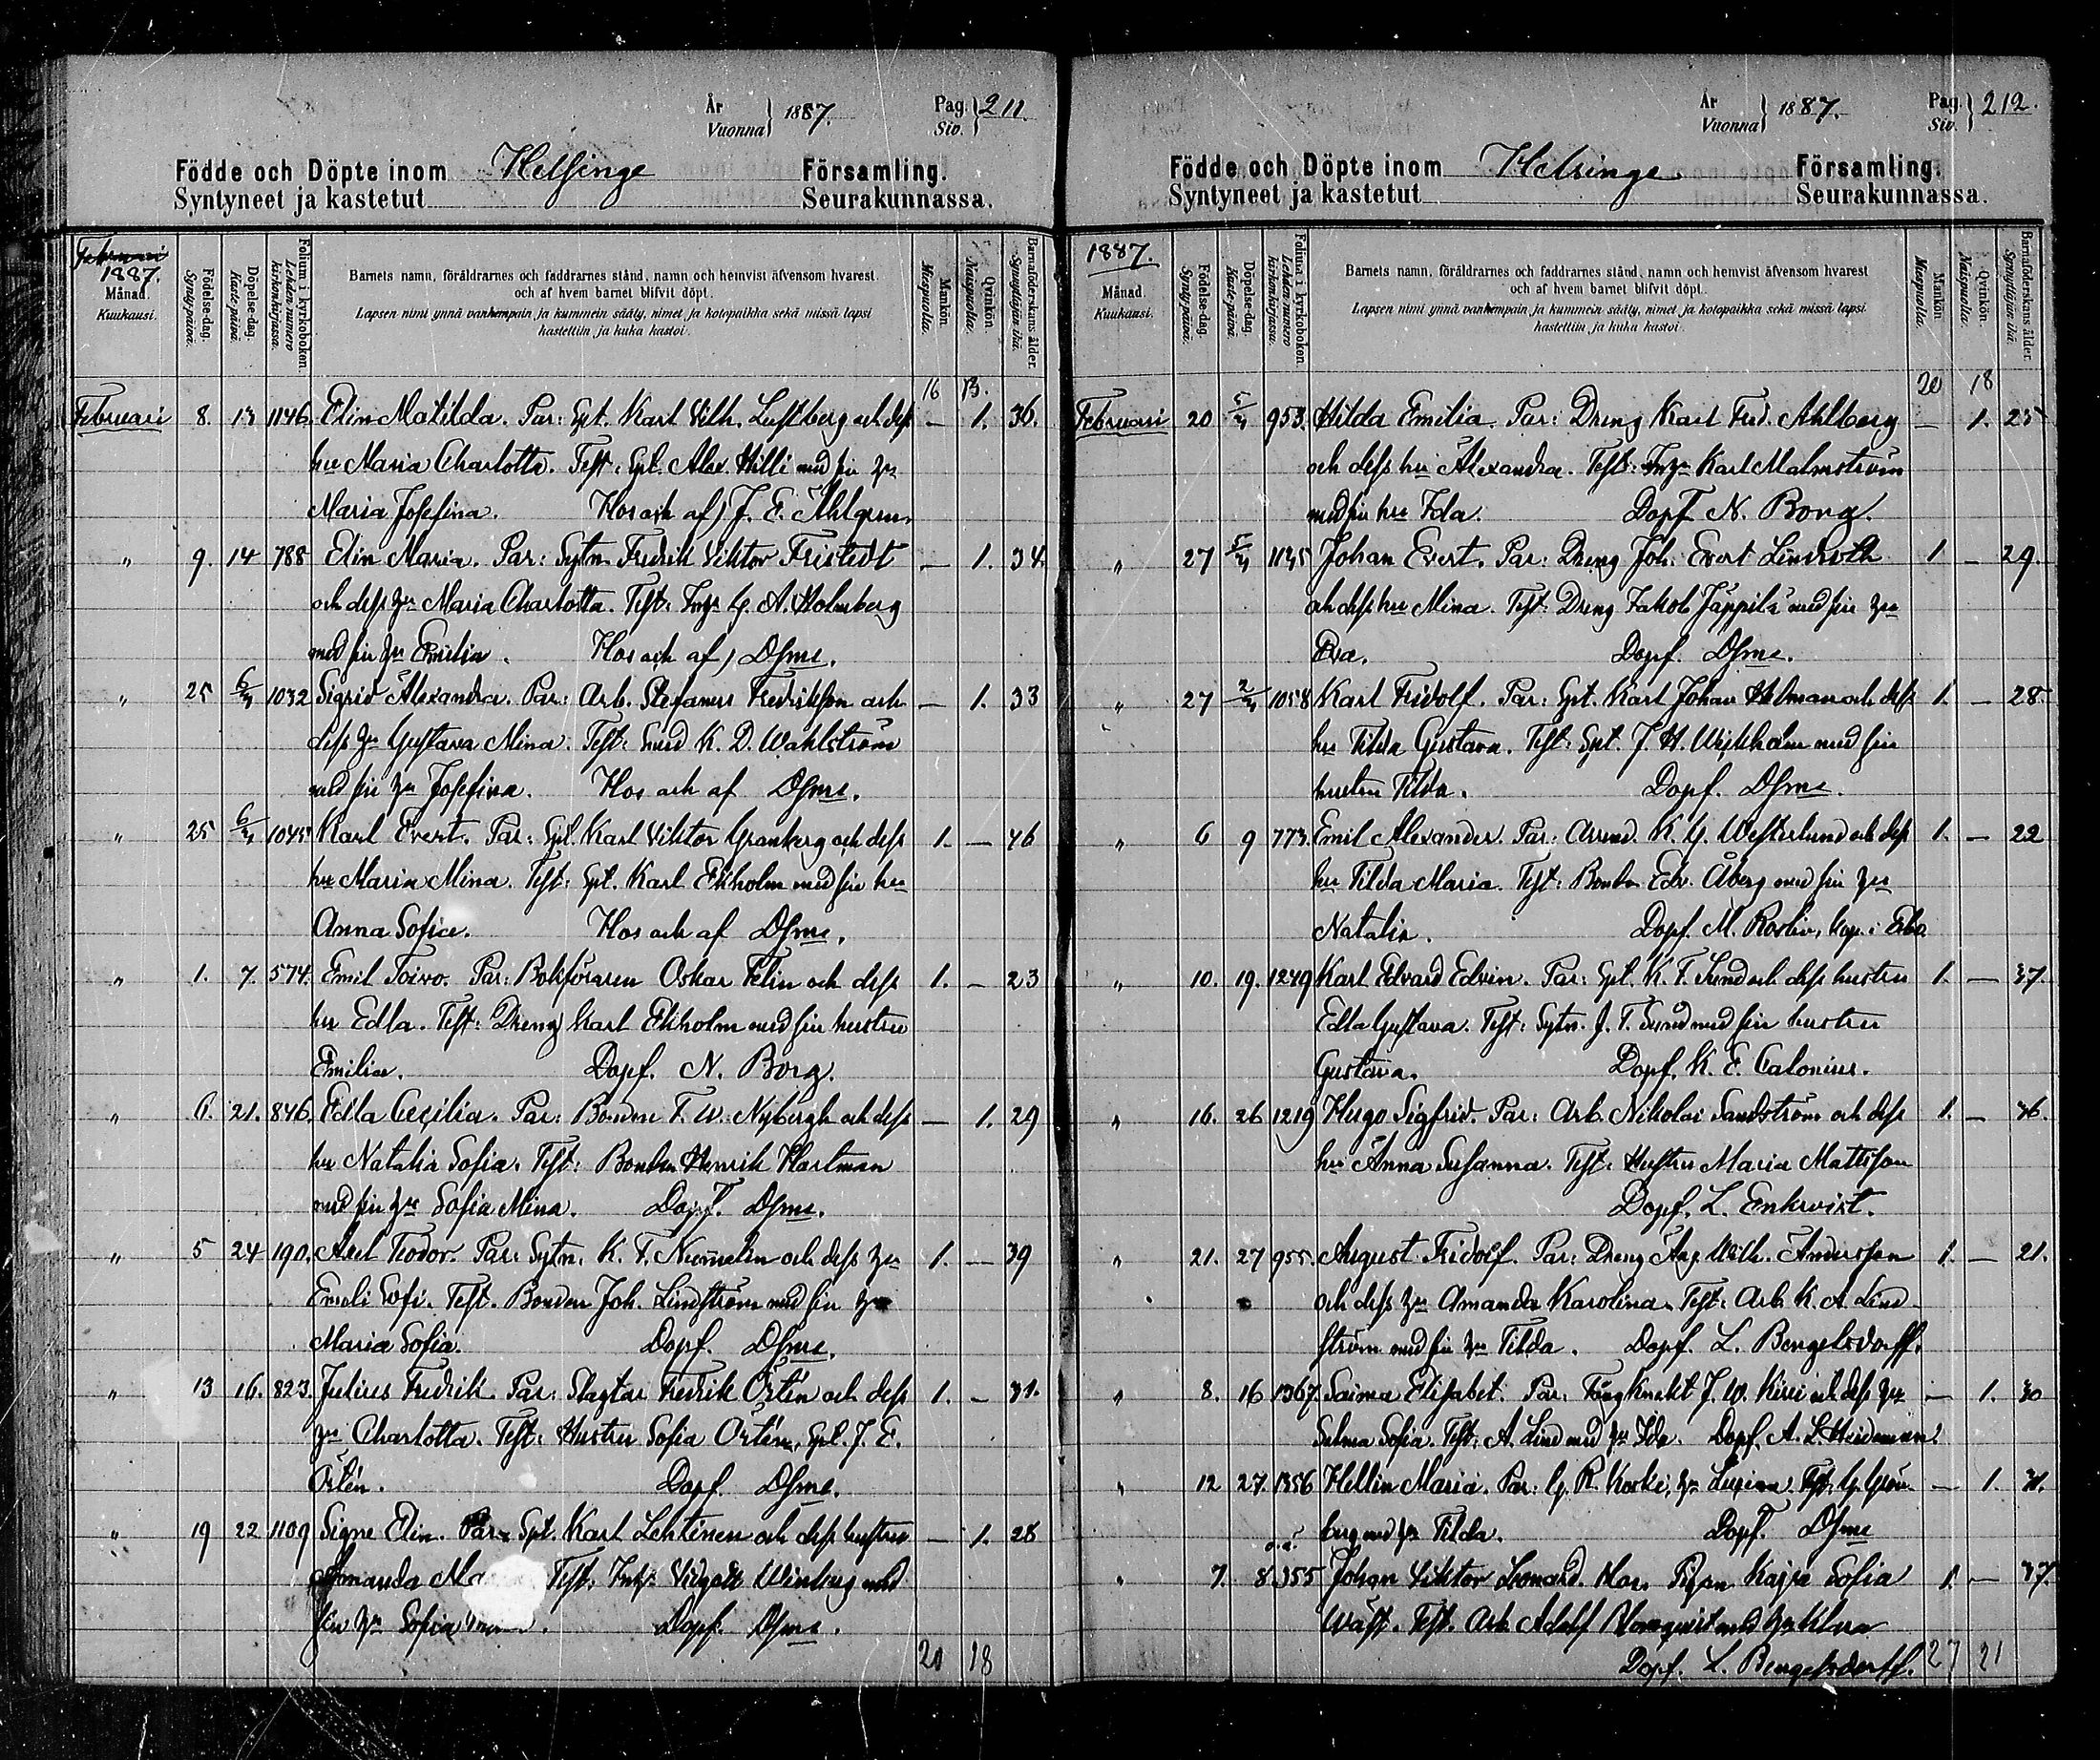 År
Vuonna } 1887.
Pag.
Siv. } 211
Födde och Döpte inom Helsinge Församling.
Syntyneet ja kastetut Seurakunnassa.
Februari
1887.
Månad.
Kuukausi.
Födelse-dag.
Syntypäivä.
Döpelse-dag.
Kastepäivä.
Folium i kyrkoboken.
Lehden numero kirkonkirjassa.
Barnets namn, föräldrarnes och faddrarnes stånd, namn och hemvist äfvensom hvarest
och af hvem barnet blifvit döpt.
Lapsen nimi ynnä vanhempain ja kummein sääty, nimet ja kotopaikka sekä missä lapsi
kastettiin ja kuka kastoi.
Mankön.
Miespuolia.
Qvinkön.
Naispuolia.
Barnaföderskans ålder.
Synnyttäjän ikä.
16 13.
Februari 8. 13 1146. Elin Matilda. Par: Spt. Karl Vilh. Luftberg och dess — 1. 36.
hu Maria Charlotta. Test: Spt. Alex. Hilli med sin hu
Maria Josefina. Hos och af J. E. Ahlgren.
" 9. 14 788 Elin Maria. Par: Sytn. Fredrik Viktor Fristedt — 1. 34.
och dess hu Maria Charlotta. Test: Inhs G. A. Holmberg
med sin hu Emelia. Hos och af Dsme.
" 25 6/3 1032 Sigrid Alexandra. Par: Arb. Stefanus Fredriksson och — 1. 33
dess hu Gustava Mina. Test: Smed K. D. Wahlström
med sin hu Josefina. Hos och af Dsme.
" 25 6/3 1045 Karl Evert. Par: Spt. Karl Viktor Granberg och dess 1. — 46
hu Maria Mina. Test: Spt. Karl Ekholm med sin hu
Anna Sofia. Hos och af Dsme.
" 1. 7. 574. Emil Toivo. Par: Bokföraren Oskar Felin och dess 1. — 23
hu Edla. Test: Dreng Karl Ekholm med sin hustru
Emilia. Dopf. N. Borg.
" 6. 21. 846. Edla Cecilia. Par: Bonden F. W. Nybergh och dess — 1. 29
hu Natalia Sofia. Test: Bonden Henrik Hartman
med sin hu Sofia Mina. Dopf. Dsme.
" 5 24 190. Axel Teodor. Par: Sytn. K. F. Nummelin och dess hu 1. — 39
Emeli Sofi. Test. Bonden Joh. Lindström med sin hu
Maria Sofia. Dopf. Dsme.
" 13 16. 823. Julius Fredrik. Par: Slagtar Fredrik Örtén och dess 1. — 31.
hu Charlotta. Test: Hustru Sofia Örtén, Spt. J. E.
Örtén. Dopf. Dsme.
" 19 22 1109 Signe Elin. Par: Spt. Karl Lehtinen och dess hustru — 1. 28
Amanda Test: Inhs Winberg med
sin hu Sofia Dopf. Dsme.
20 18
År
Vuonna } 1887.
Pag.
Siv. } 212.
Födde och Döpte inom Helsinge Församling.
Syntyneet ja kastetut Seurakunnassa.
1887.
Månad.
Kuukausi.
Födelse-dag.
Syntypäivä.
Döpelse-dag.
Kastepäivä.
Folium i kyrkoboken.
Lehden numero kirkonkirjassa.
Barnets namn, föräldrarnes och faddrarnes stånd, namn och hemvist äfvensom hvarest
och af hvem barnet blifvit döpt.
Lapsen nimi ynnä vanhempain ja kummein sääty, nimet ja kotopaikka sekä missä lapsi
kastettiin ja kuka kastoi.
Mankön.
Miespuolia.
Qvinkön.
Naispuolia.
Barnaföderskans ålder.
Synnyttäjän ikä.
20 18
Februari 20 5/3 953. Hilda Emilia. Par: Dreng Karl Fred. Ahlberg — 1. 25
och dess hu Alexandra. Test: Inhs Karl Malmström
med sin hu Ida. Dopf N. Borg.
" 27 5/3 1135 Johan Evert. Par: Dreng Joh. Evert Lindroth 1. — 29.
och dess hu Mina. Test: Dreng Jakob Jäppilä med sin hu
Eva. Dopf. Dsme.
" 27 2/3 1058 Karl Fridolf. Par: Spt. Karl Johan Helman och dess 1. — 28.
hu Tilda Gustava. Test: Spt. J. H. Wickholm med sin
hustru Tilda. Dopf. Dsme.
" 6 9 773. Emil Alexander. Par: Arrend. K. G. Westerlund och dess 1. — 22
hu Tilda Maria. Test: Bonden Edv. Åberg med sin hu
Natalia. Dopf. M. Roslin, kap. i Esbo
" 10. 19. 1249 Karl Edvard Edvin. Par: Spt. K. F. Sund och dess hustru 1. — 37.
Edla Gustava. Test: Sytn. J. F. Sund med sin hustru
Gustava. Dopf. K. E. Calonius.
" 16. 26 1219 Hugo Sigfrid. Par: Arb. Nikolai Sandström och dess 1. — 36.
hu Anna Susanna. Test: Hustru Maria Mattsson
Dopf. L. Enkvist.
" 21. 27 955. August Fridolf. Par: Dreng Aug. Wilh. Andersson 1. — 21.
och dess hu Amanda Karolina. Test: Arb. K. A. Lind-
ström med sin hu Tilda. Dopf. L. Bengelsdorff.
" 8. 16 1367. Saima Elisabet. Par: Fång Knekt J. W. Kiiri och dess hu — 1. 30
Selma Sofia. Test: A. Lind med hu Ida. Dopf. A. L. Heideman.
" 12 27. 1356 Hellin Maria. Par: G. R. Koski, hu Test: G. Grön- — 1. 31.
berg med hu Tilda. Dopf. Dsme
" 7. 8. 1355 Johan Viktor Leonard. Mor: Pigan Kajsa Sofia 1. — 37.
Wäst. Test. Arb. Adolf Blomqvist med hu Klara
Dopf. L. Bengelsdorff. 27 21